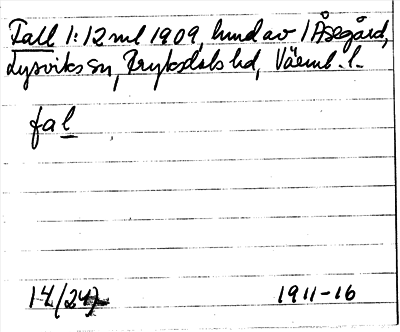 Fall 1:12 ml 1909, hmd av 1 Åsegård,
Lysviks sn, Fryksdals hd, Värml. l.
fal
14/(24)
1911-16